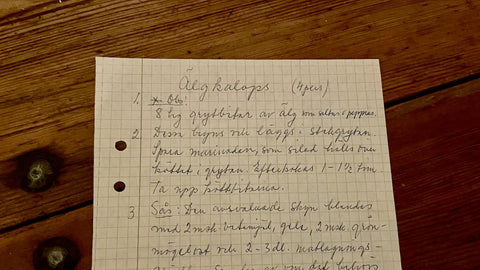 Älgkalops (4 pers)
1. * Obs!
8 hg grytbitar av älg som saltas o peppras.
2. Dem bryns och läggs i stekgrytan.
Spara marinaden, som silad hälls över
köttet i grytan. Efterkokas 1-1½ tim.
Ta upp köttbitarna.
3 Sås: Den avsvalnade skyn blandas
med 2 msk vetemjöl, gele, 2 msk grön-
mögelost och 2-3 dl. matlagnings-
om det behövs